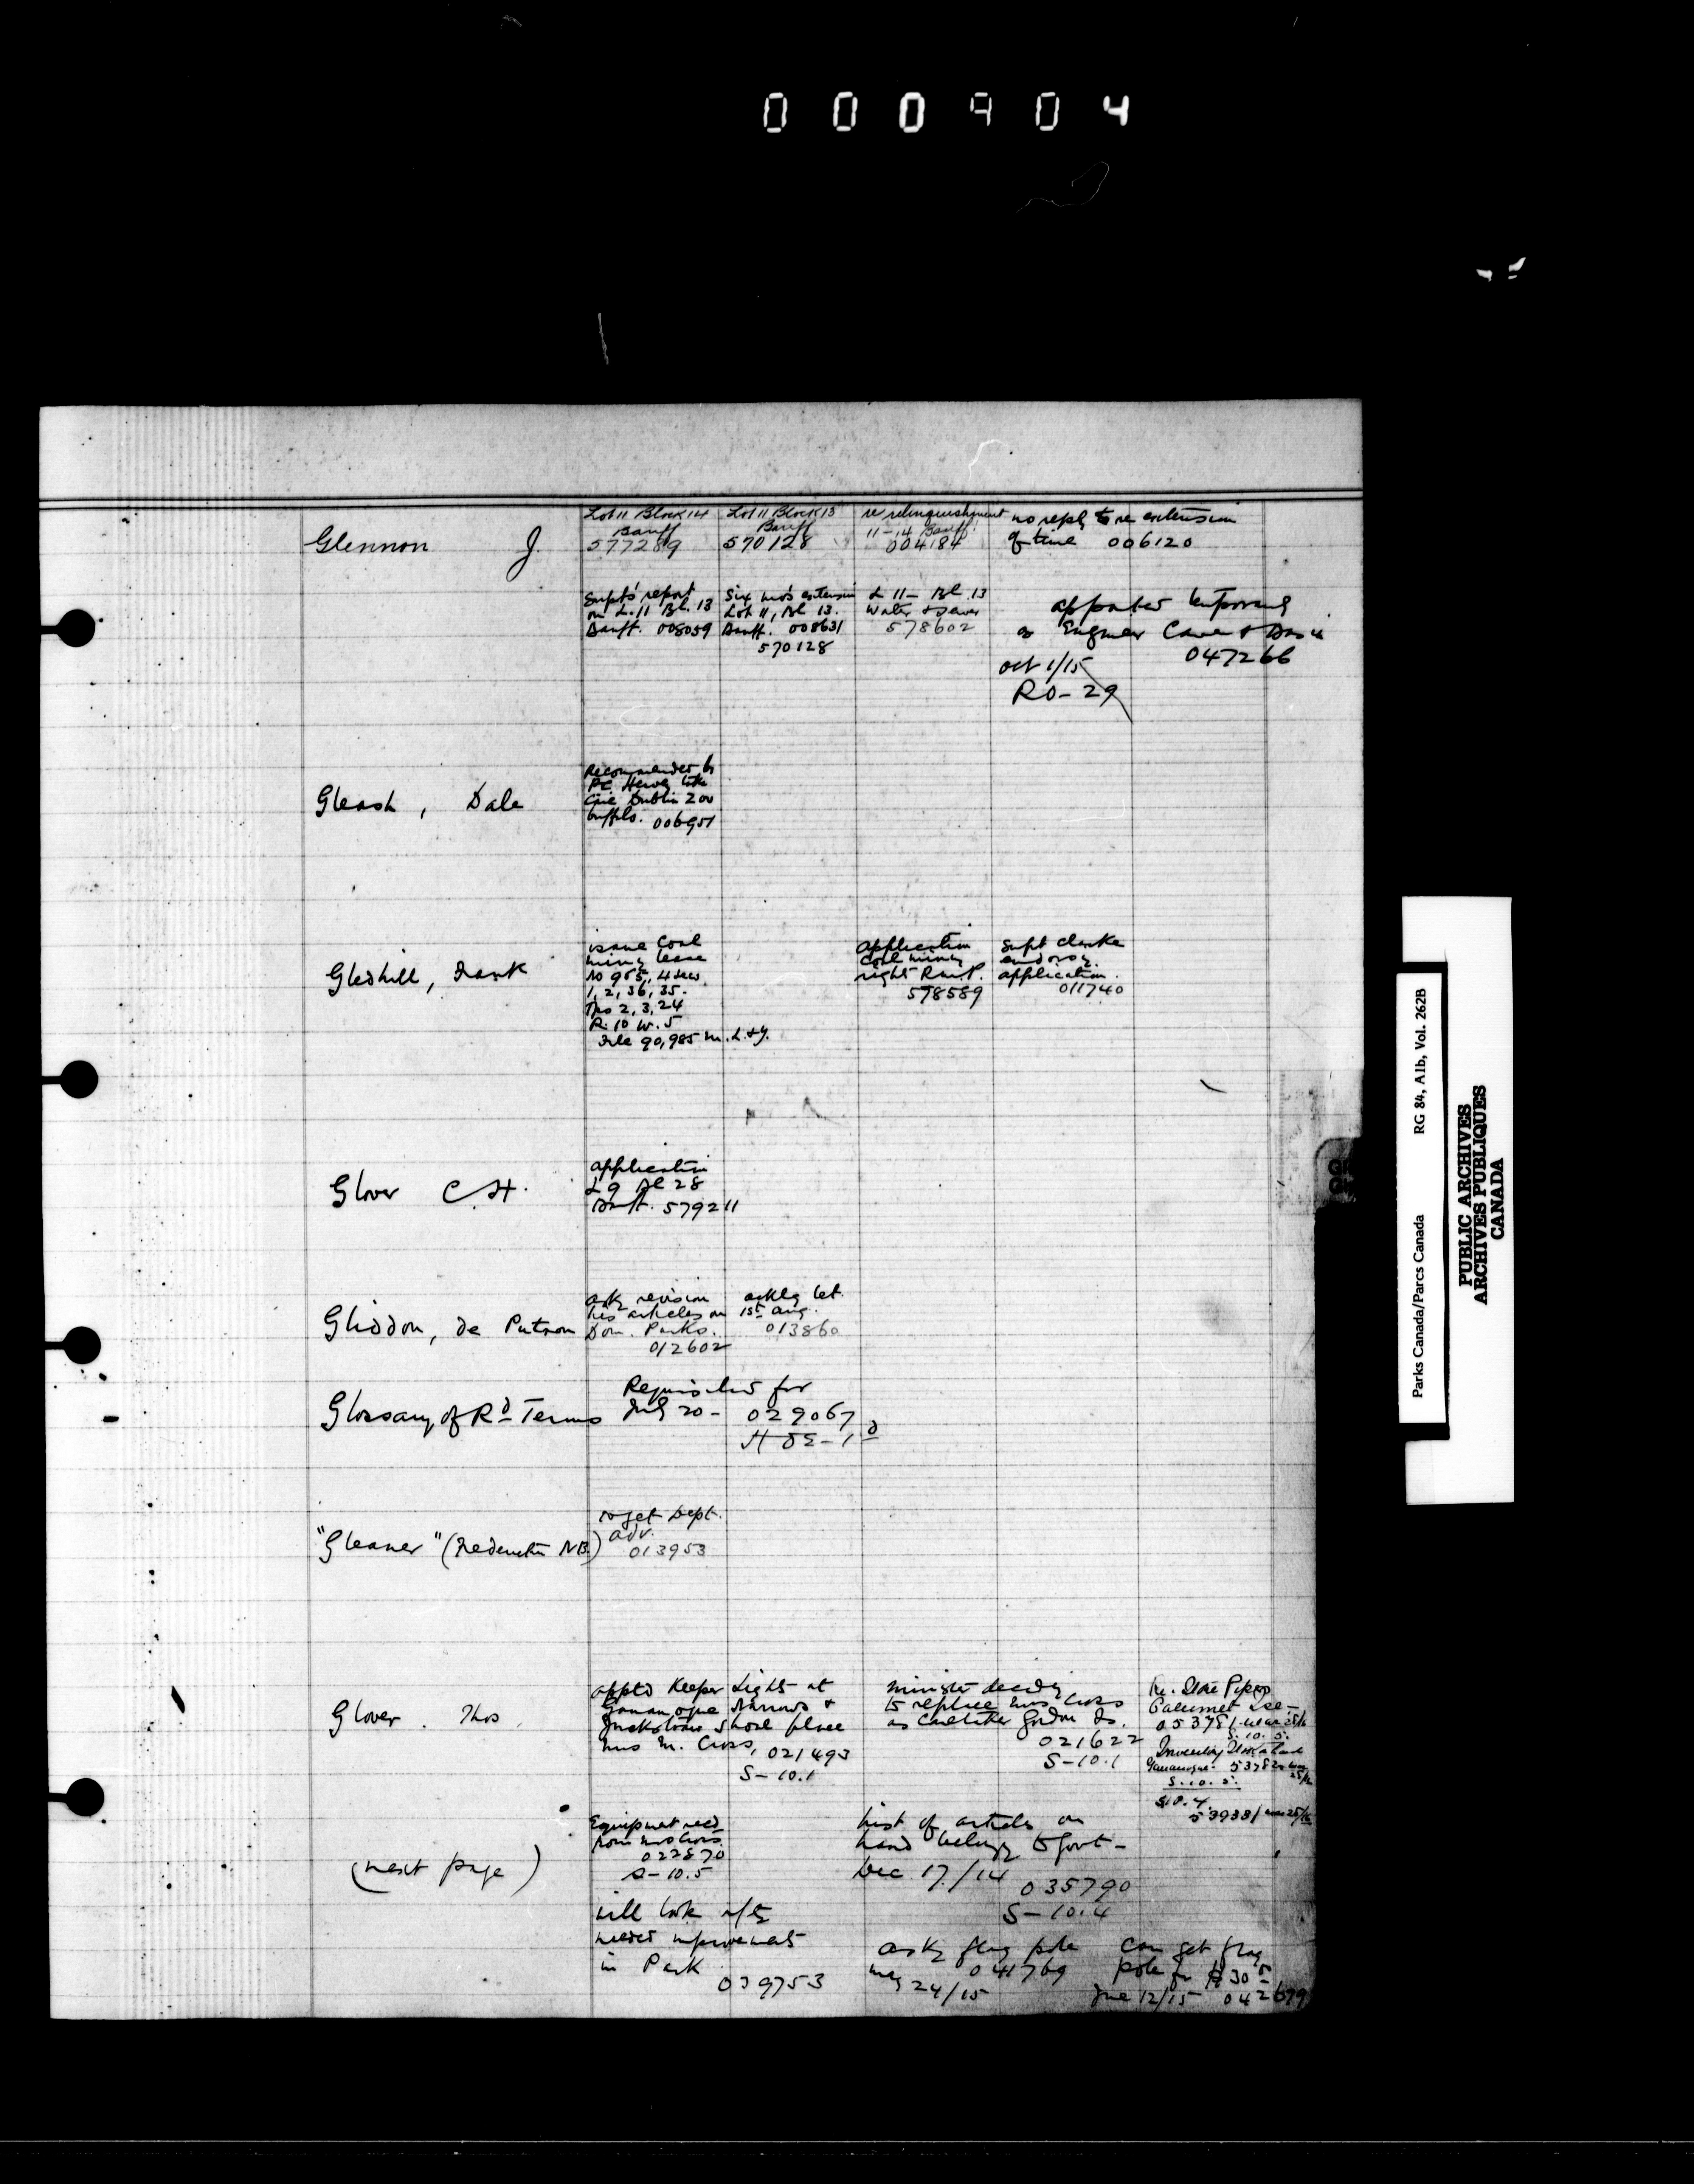 000904
Glennon J.
Lot 11 Block 14
Banff
577289
Lot 11 Block 13
Banff
570128
re relinquishment
11-14 Banff
004184
no reply to re extension
of time 006120
Supt's report
on L. 11 Bl. 13
Banff. 008059
Six mo's extension
Lot 11, Bl 13.
Banff. 008631
570128
L 11 - Bl. 13
Water & Sewer
578602
appointed temporary
as Engineer Cave & Basin
047266
Oct 1/15
RO-29
Gleash, Dale
Recommended by
buffalo. 006951
Gledhill, Frank
issue Coal
mining lease
No 965, 4 Sec
1, 2, 36, 35.
Tps 2, 3, 24
R. 10 W. 5
File 90,985 M. L. & Y.
application
coal mining
right R.M.P.
578589
Supt Clarke
endorsg.
application.
011740
Glover C. H.
application
L 9 Bl 28
Banff. 579211
Gliddon, de Putron
askg revision
his articles on
Dom. Parks.
012602
acklg let.
1st Aug.
013860
Glossary of Rd Terms
Requisition for
July 20 - 029067
"Gleaner" (Fredericton NB.)
to get Dept.
adv.
013953
Glover. Thos.
apptd Keeper Lights at
Gananoque Narrows &
Jackstraw Shoal place
Mrs M. Cross, 021493
S-10.1
Minister decidg
to replace Mrs Cross
as Caretaker Gordon Is.
021622
S-10.1
re. Stove Pipes
Calumet
S. 10. 5.
Gananoque.
S. 10. 5.
(next page)
Equipment recd
from Mrs Cross.
022870
S-10.5
List of articles on
hand belongg to Govt -
Dec 17/14 035790
S-10.4
will look after
needed improvements
in Park
039753
askg flag pole
041769
May 24/15
Can get flag
pole for $30
June 12/15 042679
Parks Canada/Parcs Canada RG 84, A1b, Vol. 262B
PUBLIC ARCHIVES
ARCHIVES PUBLIQUES
CANADA